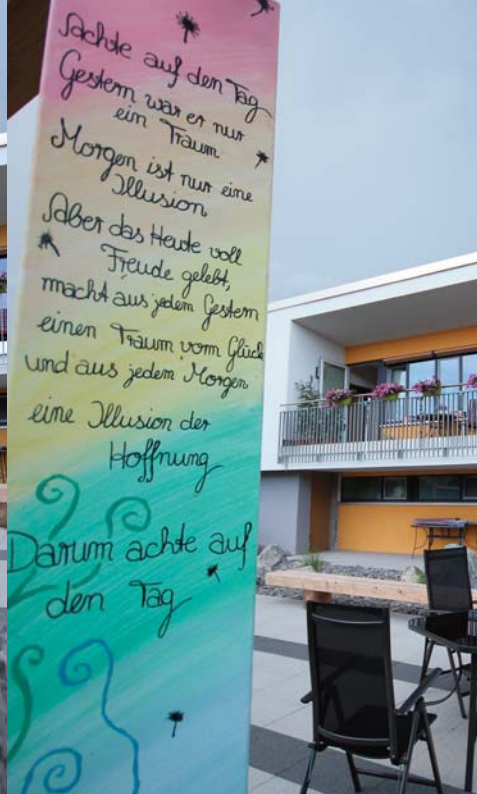 Achte auf den Tag
Gestern war er nur
ein Traum
Morgen ist nur eine
Illusion
Aber das Heute voll
Freude gelebt,
macht aus jedem Gestern
einen Traum vom Glück
und aus jedem Morgen
eine Illusion der
Hoffnung
Darum achte auf
den Tag